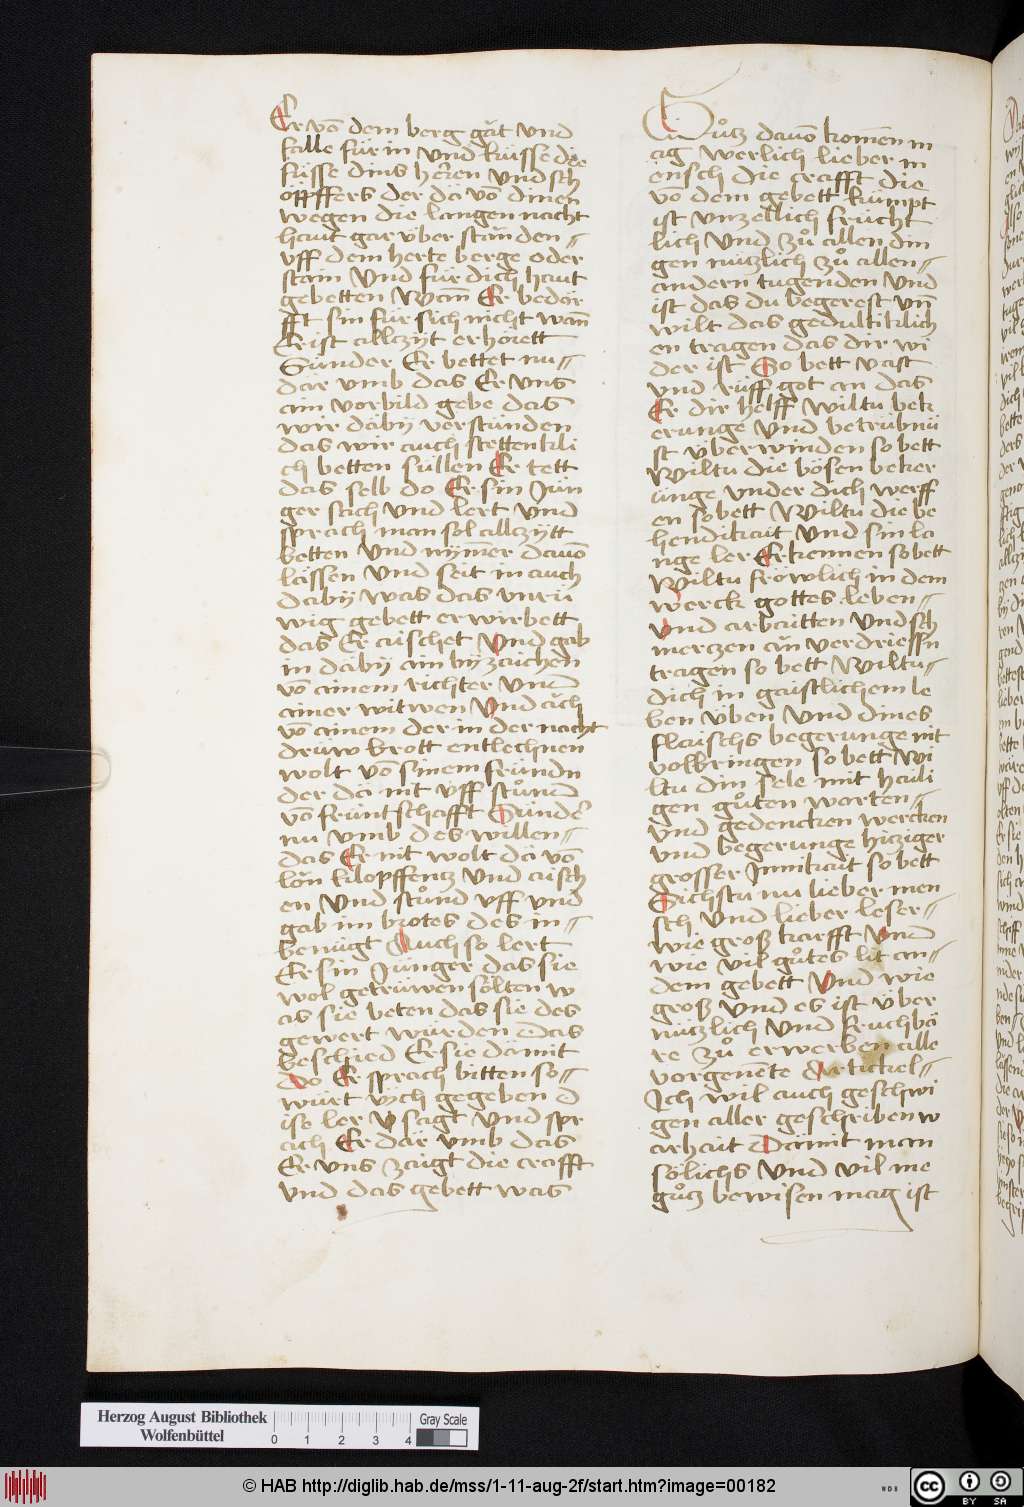 Er võ dem berg gät vnd
falle für in vnd küsse die
füsse dins herren vnd sch
öpffers der da võ dinen
wegen die langen nacht
haut gar über standen
vff dem herte berge oder
stain vnd für dich haut
gebetten Wann Er bedör
fft sin für sich nicht wann
Er ist allczyt erhörett
Sünder Er bettet nu
dar vmb das Er vns
ain vorbild gebe das
wir däby verstünden
das wir auch stettenkli
ch betten süllen Er tett
das selb do Er sin Jün
ger stäch vnd lert vnd
sprach man sol allczytt
betten vnd nymer dauõ
lässen vnd seit in auch
daby was das vnrü
wig gebett erwirbett
das Er aischet vnd gab
in däby ain byzaichen
võ ainem richter vnd
ainer witwen vnd ach
võ ainem der in der nacht
drüw brott entlechnen
wolt võ sinem fründn
der da nit vff stůnd
võ früntschafft Sünder
nu vmb des willen
das Er nit wolt da võ
lön klopffentz vnd aisch
en vnd stůnd vff vnd
gab im brotes des in
benügt Auch so lert
Er sin Jünger das sie
wol getrüwen sölten w
as sie beten das sie des
gewert würden Das
beschied Er sie dämit
do Er sprach bitten so
würt vch gegeben d
ise ler v̈ sagt vnd spr
ach Er dar vmb das
Er vns zaigt die crafft
vnd das gebett was
Gůtz dauõ komen m
ag werlich lieber m
ensch die crafft die
võ dem gebett kümpt
ist vnzellich frücht
lich vnd zů allen din
gen nützlich zů allen
andern tugenden vnd
ist das du begerest vn̄
wilt das gedultiklich
en tragen das dir wi
der ist So bett vast
vnd rüff got an das
Er dir helff wiltu bek
erunge vnd betrübnü
st überwinden so bett
wiltu die bösen beker
ünge vnder dich werff
en so bett wiltu die be
henditkait vnd sin la
nge ler Erkennen so bett
wiltu fröwlich in dem
werck gottes leben
vnd arbaitten vnd sch
merczen än verdriessn
tragen so bett wiltu
dich in gaistlichem le
ben üben vnd dines
flaischs begerunge nit
volbringen so bett wi
ltu din sele mit haili
gen gůten worten
vnd gedencken wercken
vnd begerunge hicziger
grosser Jnnikait so bett
Sichstu nu lieber men
sch vnd lieber leser
wie groß krafft vnd
wie vil gůtes lit an
dem gebett vnd wie
groß vnd es ist über
nützlich vnd fruchbä
re zů erwerben alle
vorgenẽte Artickel
Jch wil auch geschwi
gen aller geschriben w
arhait Dämit man
sölichs vnd vil me
gůtz bewisen mag ist
Herzog August Bibliothek
Wolfenbüttel
0 1 2 3 4
Gray Scale
© HAB http://diglib.hab.de/mss/1-11-aug-2f/start.htm?image=00182
WDB
cc BY SA